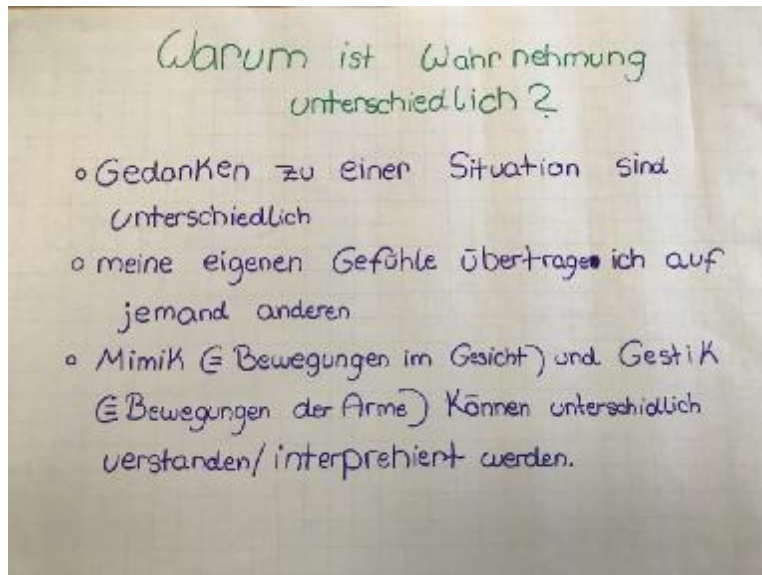 Warum ist Wahrnehmung
unterschiedlich?
o Gedanken zu einer Situation sind
unterschiedlich
o meine eigenen Gefühle übertrage ich auf
jemand anderen
o Mimik (= Bewegungen im Gesicht) und Gestik
(= Bewegungen der Arme) können unterschidlich
verstanden/interprehiert werden.